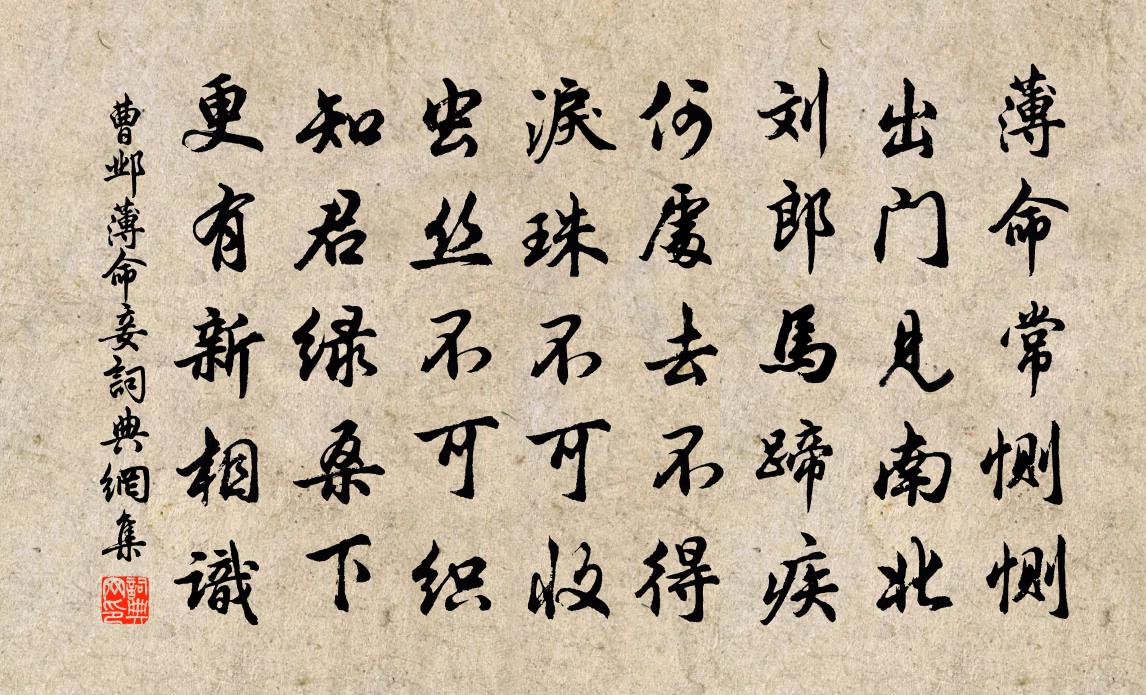 薄命常恻恻
出门见南北
刘郎馬蹄疾
何處去不得
淚珠不可收
虫丝不可织
知君绿桑下
更有新相識
曹邺薄命妾詞典網集
詞典网印